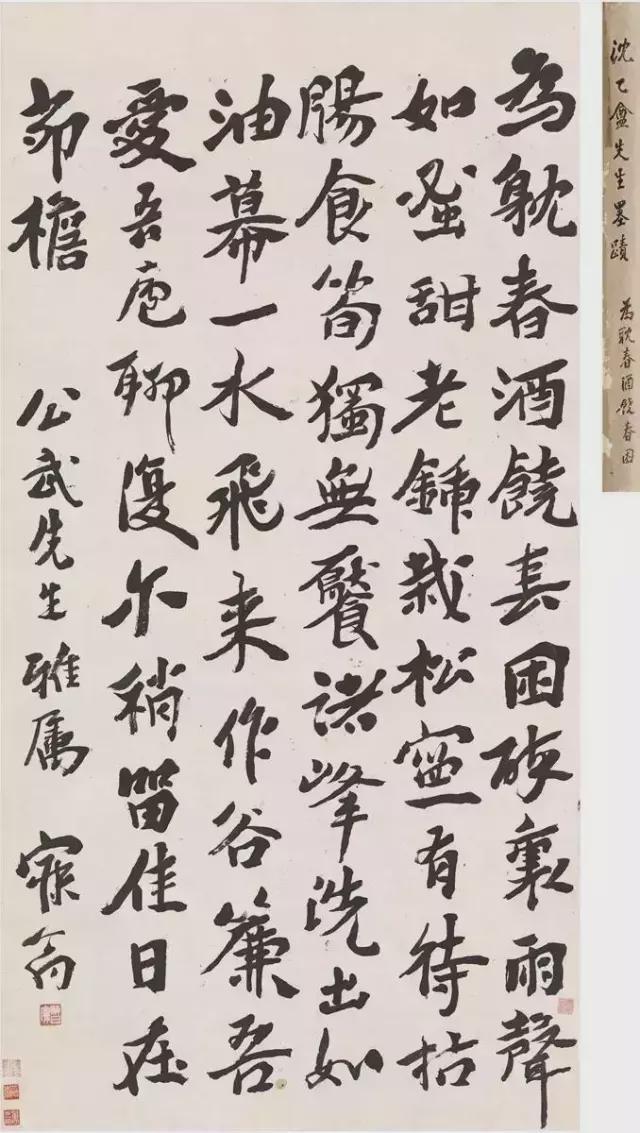 為躭春酒饒春困裹雨聲
如蜜甜老鍤栽松寧有待枯
腸食筍獨無饜諸峰洗出如
油幕一水飛来作谷簾吾
愛吾廬聊復尔稍留佳日在
茆檐 公武先生雅属 寐翁
沈乙盦先生墨蹟 為耽春酒饒春困